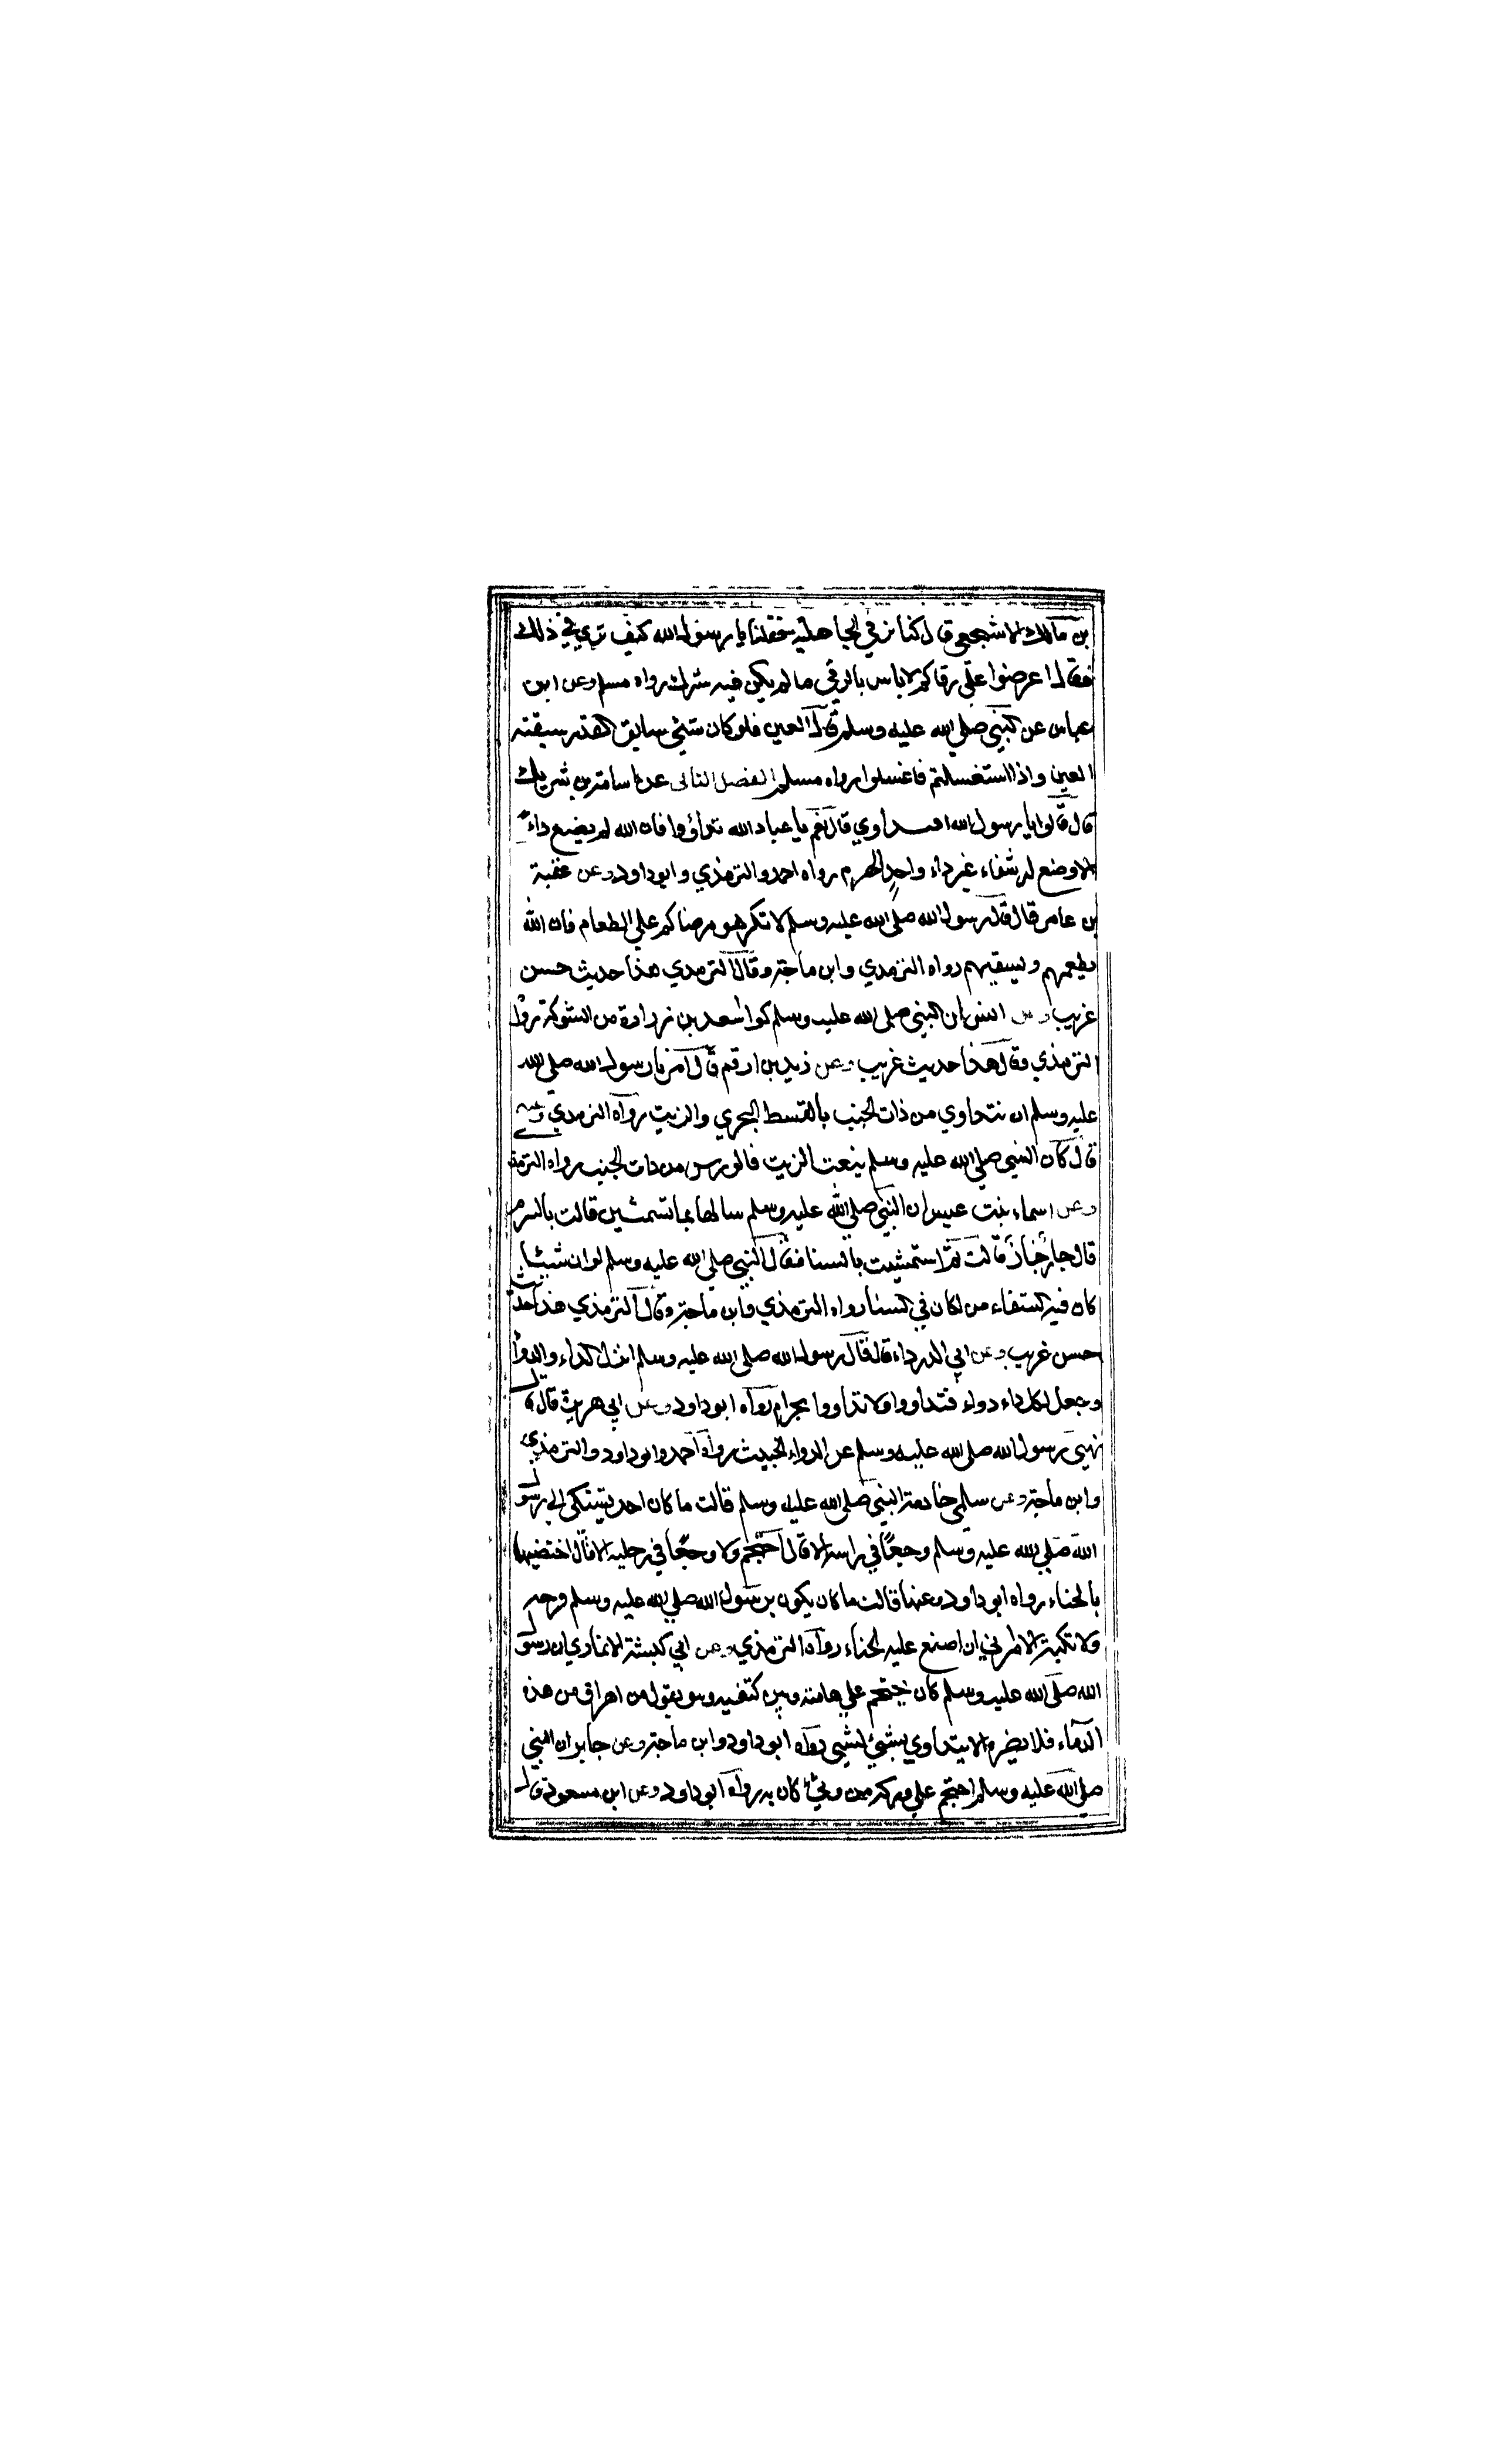 بن مالك الاشجعي قال كنا نرقي في الجاهلية فقلنا يا رسول الله كيف تري في ذلك
فقال اعرضوا علي رقاكم لاباس بالرقي مالم يكن فيه شرك رواه مسلم وعن ابن
عباس عن النبي صلي الله عليه وسلم قال العين فلوكان شئ سابق القدر سبقته
العين واذا استغسلتم فاغسلوا رواه مسلم الفصل الثاني عن اسامة بن شريك
قال قالوا يا رسول الله افنتداوي قال نعم يا عباد الله تداؤوا فان الله لم يضع داءً
الا وضع له شفاء غير داء واحدٍ الهرم رواه احمد والترمذي وابو داود وعن عقبة
بن عامر قال قال رسول الله صلي الله عليه وسلم لا تكرهو مرضاكم علي الطعام فان الله
يطعمهم ويسقيهم رواه الترمذي وابن ماجة وقال الترمذي هذا حديث حسن
غريب وعن انس ان النبي صلي الله عليه وسلم كوا اسعد بن زرارة من الشوكة رواه
الترمذي وقال هذا حديث غريب وعن زيد بن ارقم قال امرنا رسول الله صلي الله
عليه وسلم ان نتداوي من ذات الجنب بالقسط البحري والزيت رواه الترمذي وعنه
قال كان النبي صلي الله عليه وسلم ينعت الزيت فالورس من ذات الجنب رواه الترمذ
وعن اسماء بنت عميس ان النبي صلي الله عليه وسلم سالها بما تستمشين قالت بالشبرم
قال حار حار قالت ثم استمشيت بالسنا فقال النبي صلي الله عليه وسلم لو ان شيئا
كان فيه الشفاء من لكان في السنا رواه الترمذي وابن ماجة وقال الترمذي هذا حديث
حسن غريب وعن ابي الدرداء قال قال رسول الله صلي الله عليه وسلم انزل الداء والدوا
وجعل لكل داء دواء فتداووا ولا تداووا بحرام رواه ابو داود وعن ابي هريرة قال
نهي رسول الله صلي الله عليه وسلم عن الدواء الخبيث رواه احمد وابو داود والترمذي
وابن ماجة وعن سلمي خادمة النبي صلي الله عليه وسلم قالت ما كان احد يشتكي الي رسول
الله صلي الله عليه وسلم وجعًا في راسه الا قال احتجم ولا وجعًا في رجليه الا قال اختضبهما
بالحناء رواه ابو داود وعنها قالت ما كان يكون برسول الله صلي الله عليه وسلم قرحة
ولا نكبة الا امرني ان اصنع عليه الحناء رواه الترمذي وعن ابي كبشة الانماري ان رسول
الله صلي الله عليه وسلم كان يحتجم علي هامته وبين كتفيه وهو يقول من اهراق من هذه
الدماء فلا يضره الا يتداوي بشئ لشئ رواه ابو داود وابن ماجة وعن جابر ان النبي
صلي الله عليه وسلم احتجم علي وركه من وثئ كان به رواه ابو داود وعن ابن مسعود قال